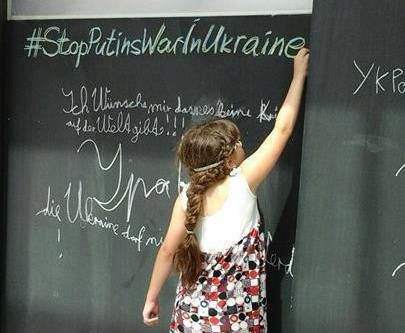 #StopPutinsWarInUkraine
Ich Wünsche mir dass es keine
auf der Welt gibt!!!
Укра
die Ukraine darf
!